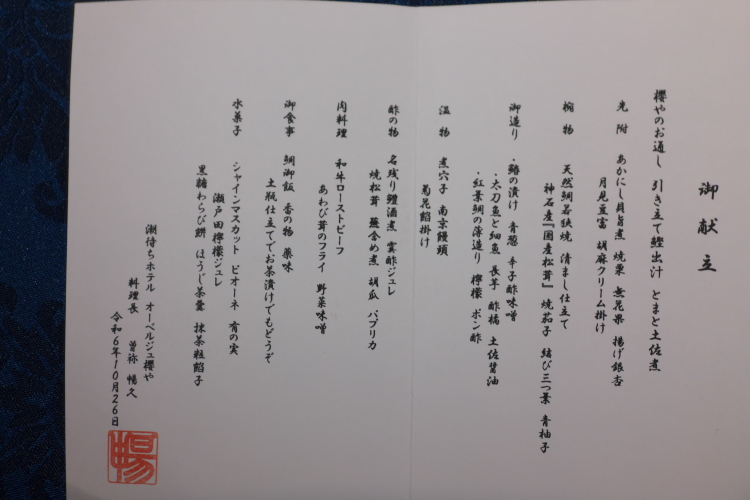 御献立
櫻やのお通し 引き立て鰹出汁 とまと土佐煮
先附 あかにし貝旨煮 焼栗 無花果 揚げ銀杏
月見豆富 胡麻クリーム掛け
椀物 天然鯛若狭焼 清まし仕立て
神石産『国産松茸』 焼茄子 結び三つ葉 青柚子
御造り ・鰆の漬け 青葱 辛子酢味噌
・太刀魚と細魚 長芋 酢橘 土佐醤油
・紅葉鯛の薄造り 檸檬 ポン酢
温物 煮穴子 南京饅頭
菊花餡掛け
酢の物 名残り鱧酒煮 雲酢ジュレ
焼松茸 蕪含め煮 胡瓜 パプリカ
肉料理 和牛ローストビーフ
あわび茸のフライ 野菜味噌
御食事 鯛御飯 香の物 薬味
土瓶仕立てでお茶漬けでもどうぞ
水菓子 シャインマスカット ピオーネ 有の実
瀬戸田檸檬ジュレ
黒糖わらび餅 ほうじ茶羹 抹茶粒餡子
潮待ちホテル オーベルジュ櫻や
料理長 曽祢 暢久
令和6年10月26日
暢